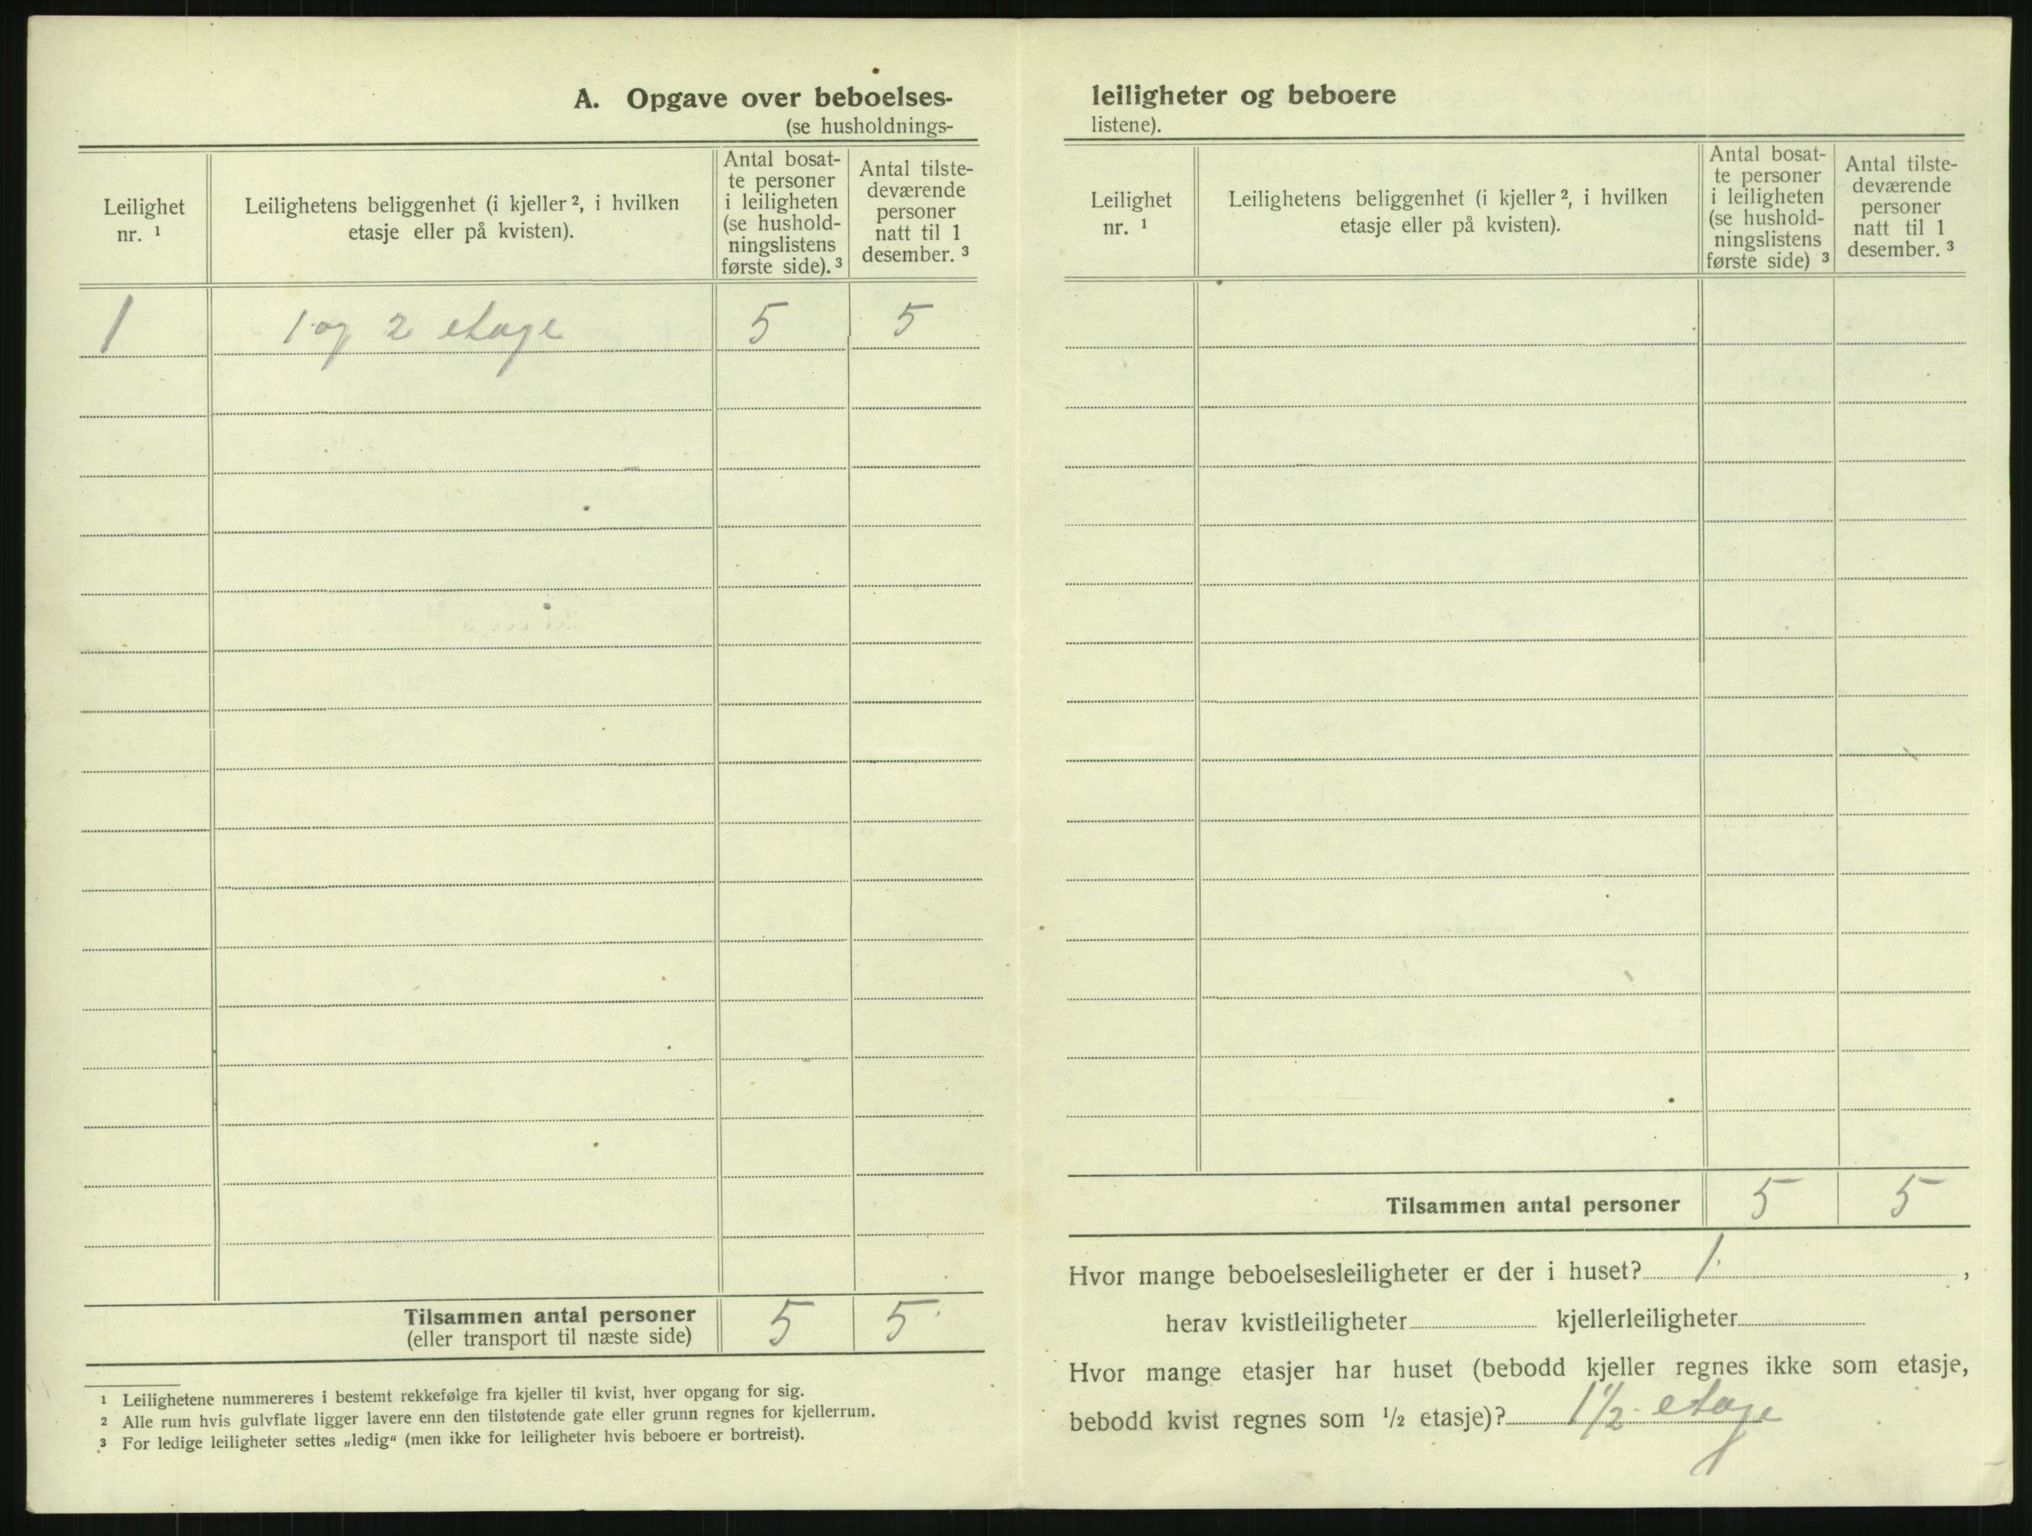 A. Opgave over beboelses-
(se husholdnings-
Leilighet
nr. ¹
Leilighetens beliggenhet (i kjeller ², i hvilken
etasje eller på kvisten).
Antal bosat-
te personer
i leiligheten
(se hushold-
ningslistens
første side). ³
Antal tilste-
deværende
personer
natt til 1
desember. ³
1 1 og 2 etage 5 5
Tilsammen antal personer 5 5
(eller transport til næste side)
¹ Leilighetene nummereres i bestemt rekkefølge fra kjeller til kvist, hver opgang for sig.
² Alle rum hvis gulvflate ligger lavere enn den tilstøtende gate eller grunn regnes for kjellerrum.
³ For ledige leiligheter settes „ledig“ (men ikke for leiligheter hvis beboere er bortreist).
leiligheter og beboere
listene).
Leilighet
nr. ¹
Leilighetens beliggenhet (i kjeller ², i hvilken
etasje eller på kvisten).
Antal bosat-
te personer
i leiligheten
(se hushold-
ningslistens
første side) ³
Antal tilste-
deværende
personer
natt til 1
desember. ³
Tilsammen antal personer 5 5
Hvor mange beboelsesleiligheter er der i huset? 1. ,
herav kvistleiligheter kjellerleiligheter
Hvor mange etasjer har huset (bebodd kjeller regnes ikke som etasje,
bebodd kvist regnes som ½ etasje)? 1½ etage